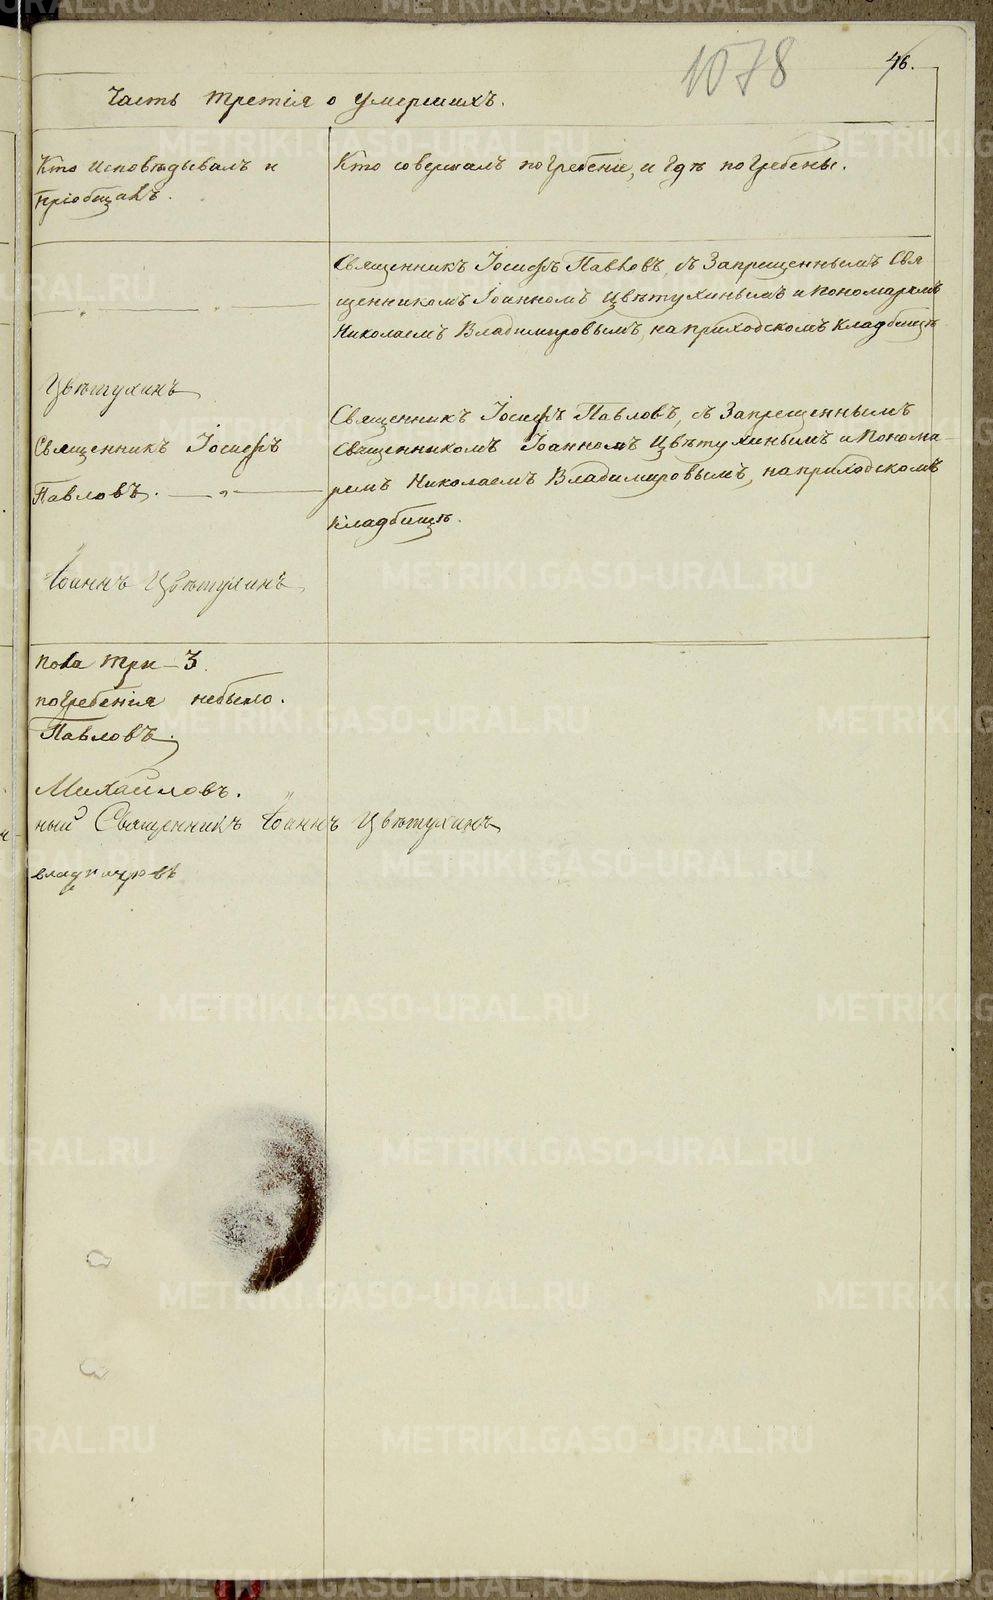 1078
46.
Часть третія о умершихъ.
Кто исповѣдывалъ и
пріобщалъ.
Кто совершалъ погребеніе, и гдѣ погребены.
Священникъ Іосифъ Павловъ, съ Запрещеннымъ Свя
щенникомъ Іоанномъ Цвѣтухинымъ и пономаремъ
Николаемъ Владимировымъ, на приходскомъ кладбищѣ
Цвѣтухинъ
Священникъ Іосифъ
Павловъ.
Священникъ Іосифъ Павловъ, съ Запрещеннымъ
Священникомъ Іоанномъ Цвѣтухинымъ и Понома-
ремъ Николаемъ Владимировымъ, на приходскомъ
кладбищѣ.
Іоаннъ Цвѣтухинъ
пола три – 3.
погребенія небыло.
Павловъ.
Михайловъ.
ный Священникъ Іоаннъ Цвѣтухинъ
METRIKI.GASO-URAL.RU